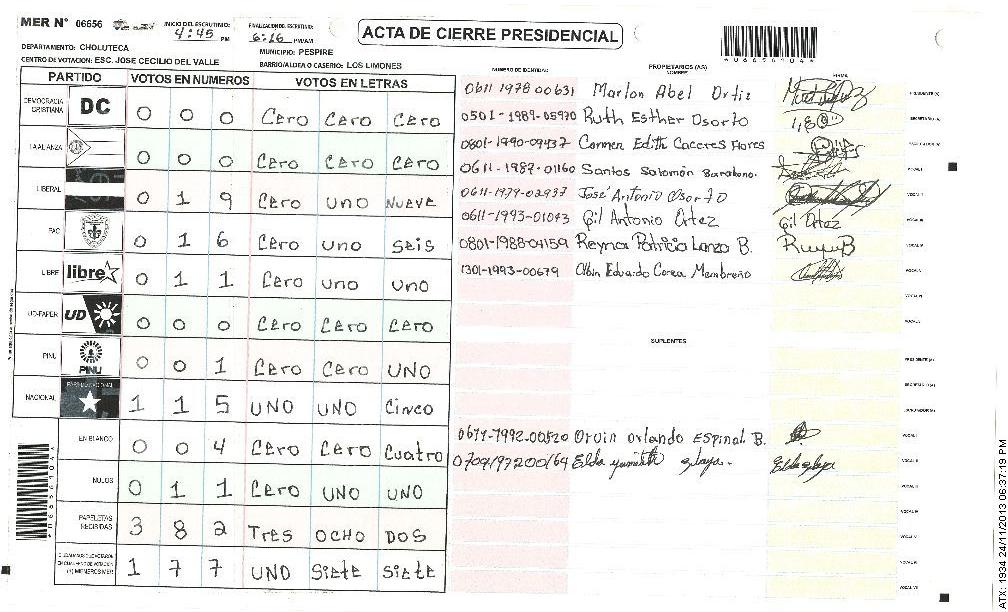 MER N° 06656
INICIO DEL ESCRUTINIO: 4:45 PM
FINALIZACION DEL ESCRUTINIO: 6:16 PM/AM
ACTA DE CIERRE PRESIDENCIAL
*06656104*
DEPARTAMENTO: CHOLUTECA
MUNICIPIO: PESPIRE
CENTRO DE VOTACION: ESC. JOSE CECILIO DEL VALLE
BARRIO/ALDEA O CASERIO: LOS LIMONES
PARTIDO VOTOS EN NUMEROS VOTOS EN LETRAS
DEMOCRACIA CRISTIANA DC 0 0 0 Cero Cero Cero
LA ALIANZA 0 0 0 Cero Cero Cero
LIBERAL 0 1 9 Cero Uno Nueve
PAC 0 1 6 Cero uno Seis
LIBRE libre 0 1 1 Cero uno uno
UD-FAPER UD 0 0 0 Cero Cero Cero
PINU PINU 0 0 1 Cero Cero UNO
NACIONAL PARTIDO NACIONAL 1 1 5 UNO UNO Cinco
EN BLANCO 0 0 4 Cero Cero Cuatro
NULOS 0 1 1 Cero UNO UNO
PAPELETAS RECIBIDAS 3 8 2 Tres OCHO DOS
1 7 7 UNO Siete Siete
NUMERO DE IDENTIDAD PROPIETARIOS (AS) NOMBRE FIRMA
0611 1978 00631 Marlon Abel Ortiz PRESIDENTE (A)
0501-1989-05970 Ruth Esther Osorto SECRETARIO (A)
0801-1990-09437 Carmen Edith Caceres Flores ESCRUTADOR (A)
0611-1987-01160 Santos Salomón Barahona. VOCAL I
0611-1979-02937 José Antonio Osorto VOCAL II
0611-1993-01043 Gil Antonio Ortez Gil Ortez VOCAL III
0801-1988-04159 Reyna Patricia Lanza B. VOCAL IV
1301-1993-00679 Albin Eduardo Correa Membreño VOCAL V
VOCAL VI
VOCAL VII
SUPLENTES
PRESIDENTE (A)
SECRETARIO (A)
ESCRUTADOR (A)
Orvin Orlando Espinal B. VOCAL I
0709197200164 Elda VOCAL II
VOCAL III
VOCAL IV
VOCAL V
VOCAL VI
VOCAL VII
*06656104*
ATX: 1934 24/11/2013 06:37:19 PM